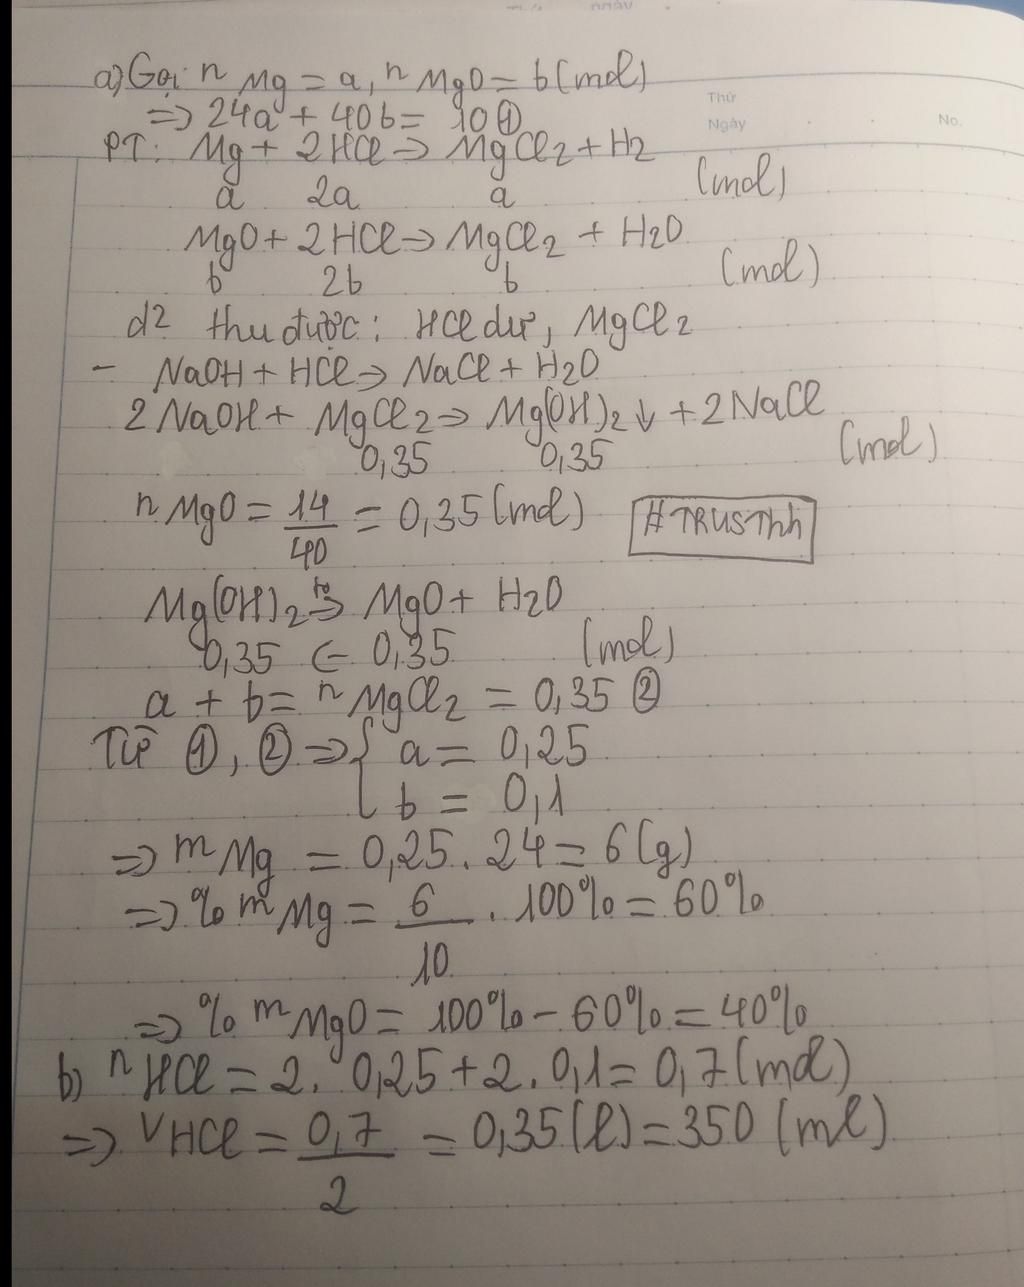 Thứ
Ngày
No.
a) Gọi n Mg = a, n MgO = b (mol)
=> 24a + 40b = 10 ①
PT: Mg + 2HCl => MgCl2 + H2
a 2a a (mol)
MgO + 2HCl => MgCl2 + H2O
b 2b b (mol)
d2 thu được: HCl dư, MgCl2
- NaOH + HCl => NaCl + H2O
2NaOH + MgCl2 => Mg(OH)2↓ + 2NaCl
0,35 0,35 (mol)
n MgO = 14/40 = 0,35 (mol) #TRUSThh
Mg(OH)2 =t°> MgO + H2O
0,35 <= 0,35 (mol)
a + b = n MgCl2 = 0,35 ②
Từ ①, ② => { a = 0,25
b = 0,1
=> m Mg = 0,25 . 24 = 6 (g)
=> % m Mg = 6/10 . 100% = 60%
=> % m MgO = 100% - 60% = 40%
b) n HCl = 2. 0,25 + 2. 0,1 = 0,7 (mol)
=> V HCl = 0,7/2 = 0,35 (l) = 350 (ml)